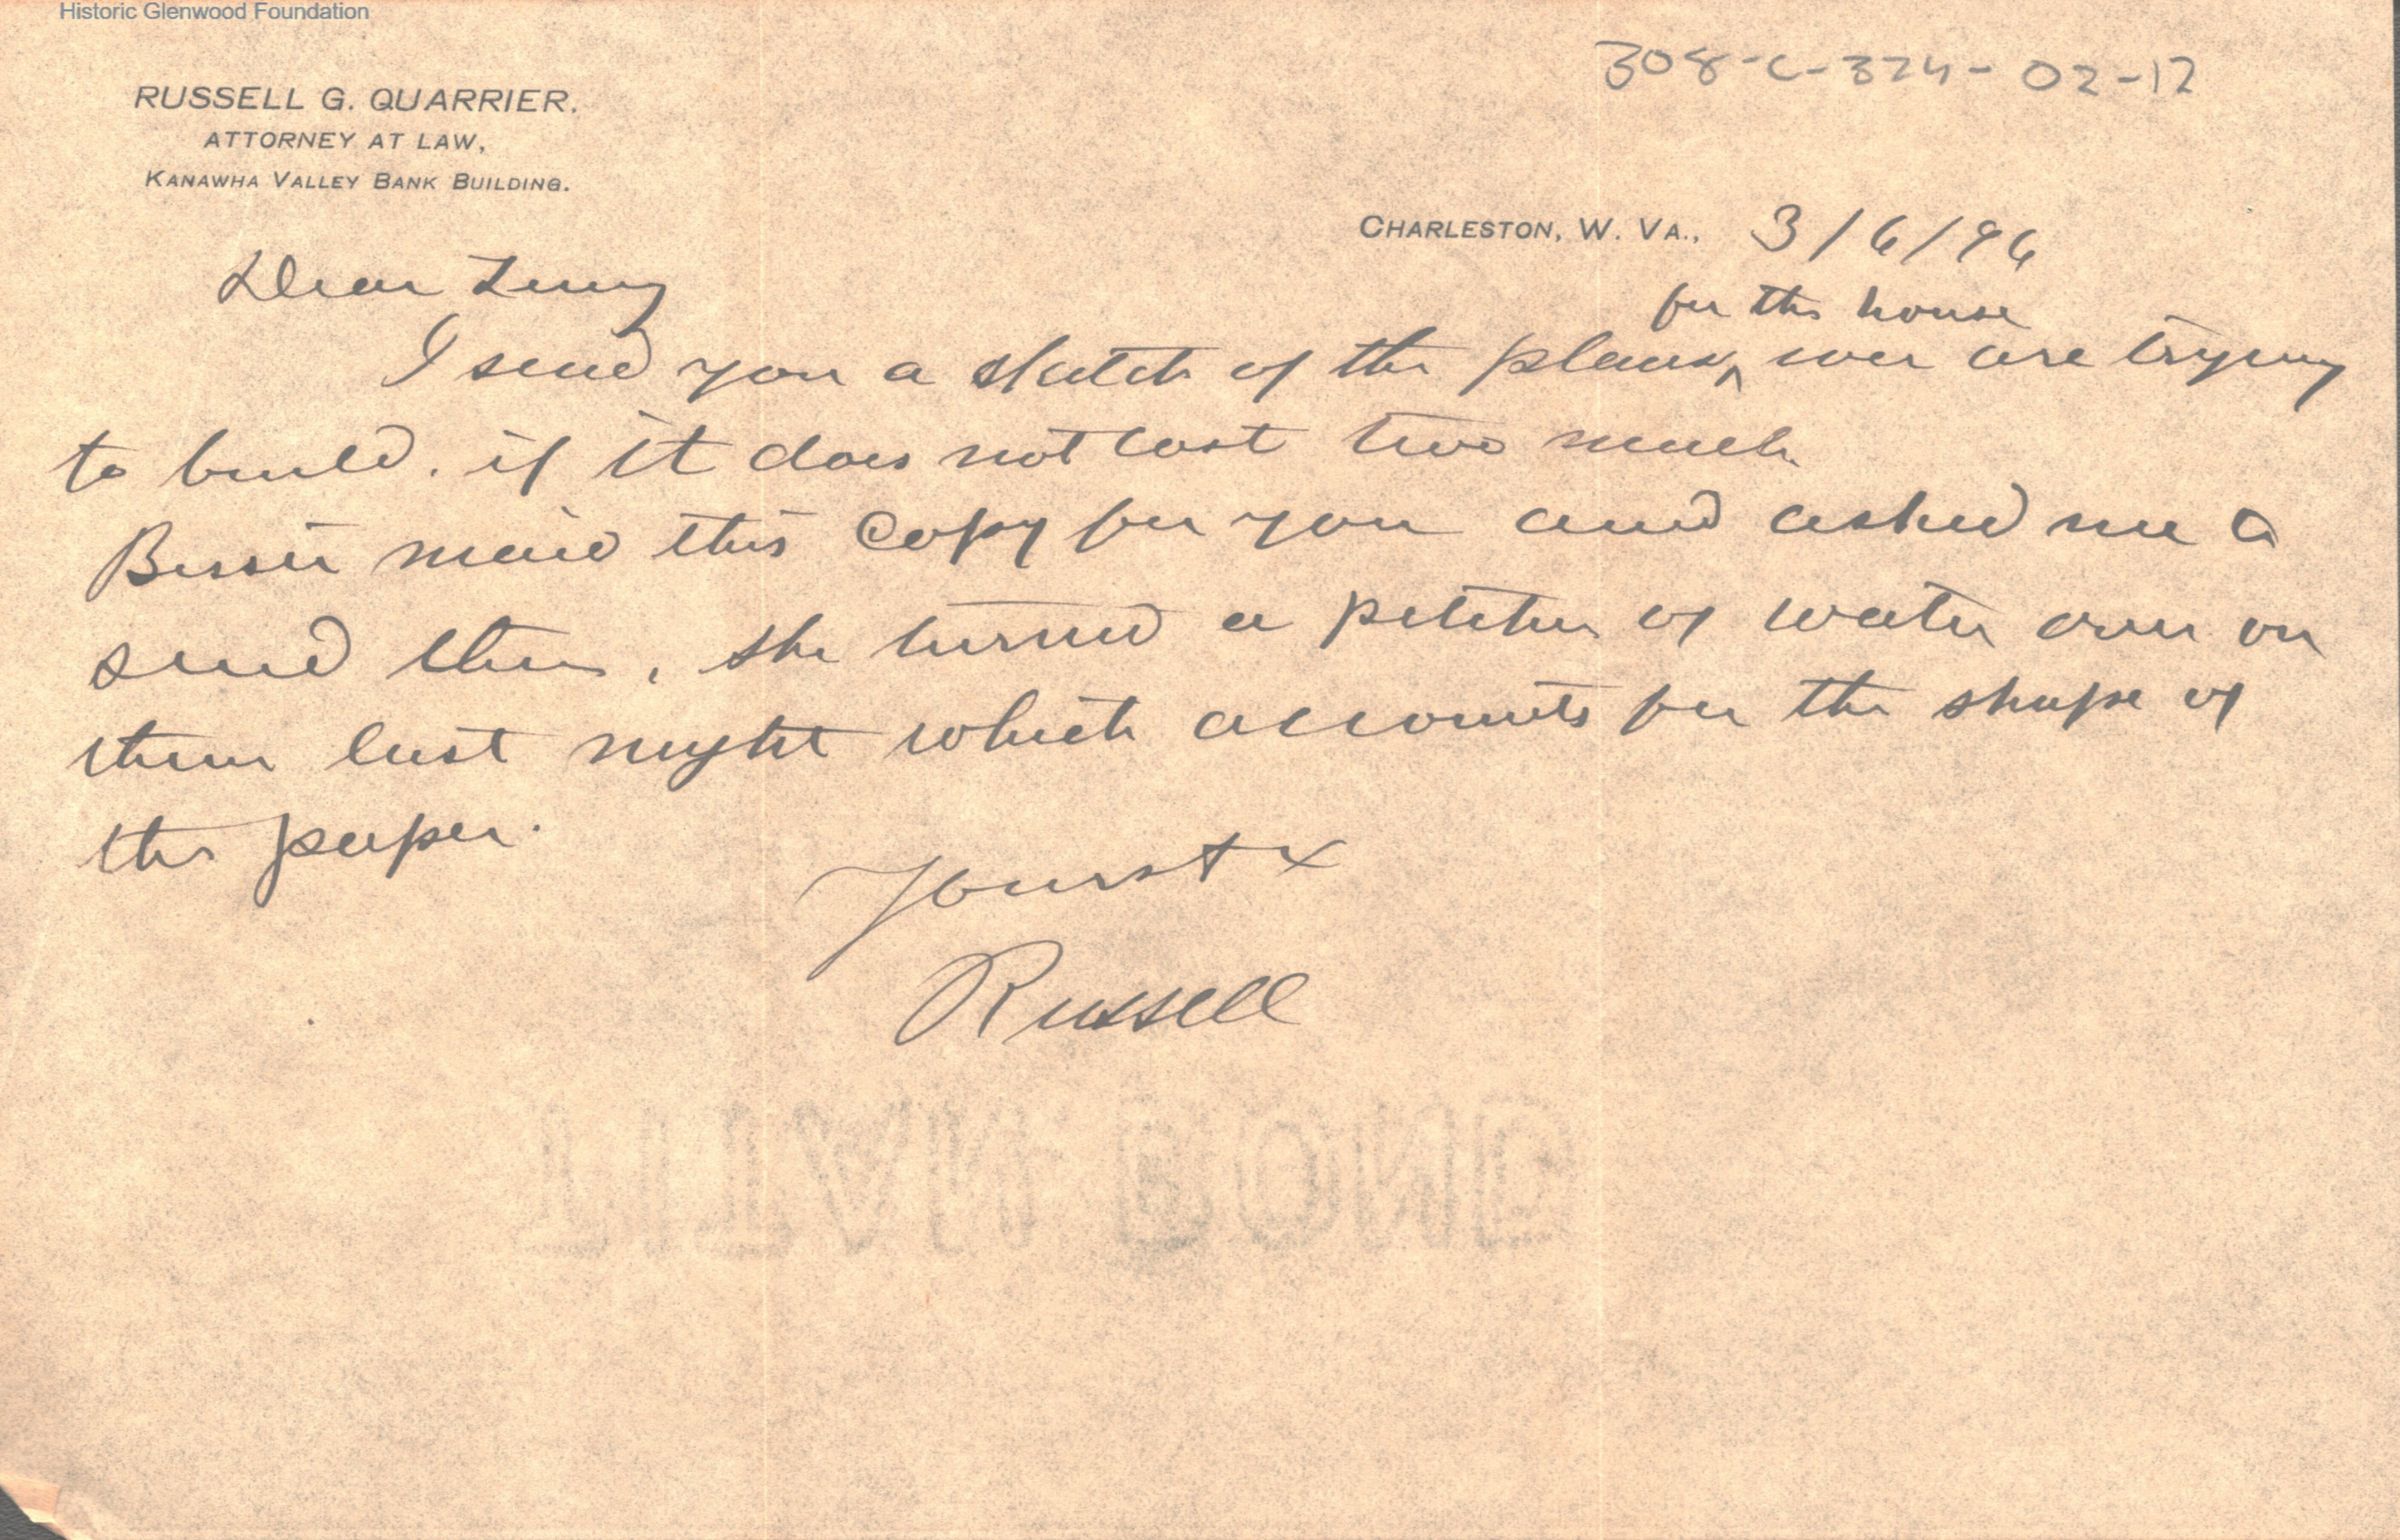 Historic Glenwood Foundation
308-C-324-02-12
RUSSELL G. QUARRIER.
ATTORNEY AT LAW,
KANAWHA VALLEY BANK BUILDING.
CHARLESTON, W. VA., 3/6/96
Dear
for the house
I send you a sketch of the plans ^ we are trying
to build. if it does not cost two much.
Bessie maid this copy for you and asked me
send them, she turned a pitcher of water over on
them last night which accounts for the shape of
the paper.
Yours
Russell
BOND